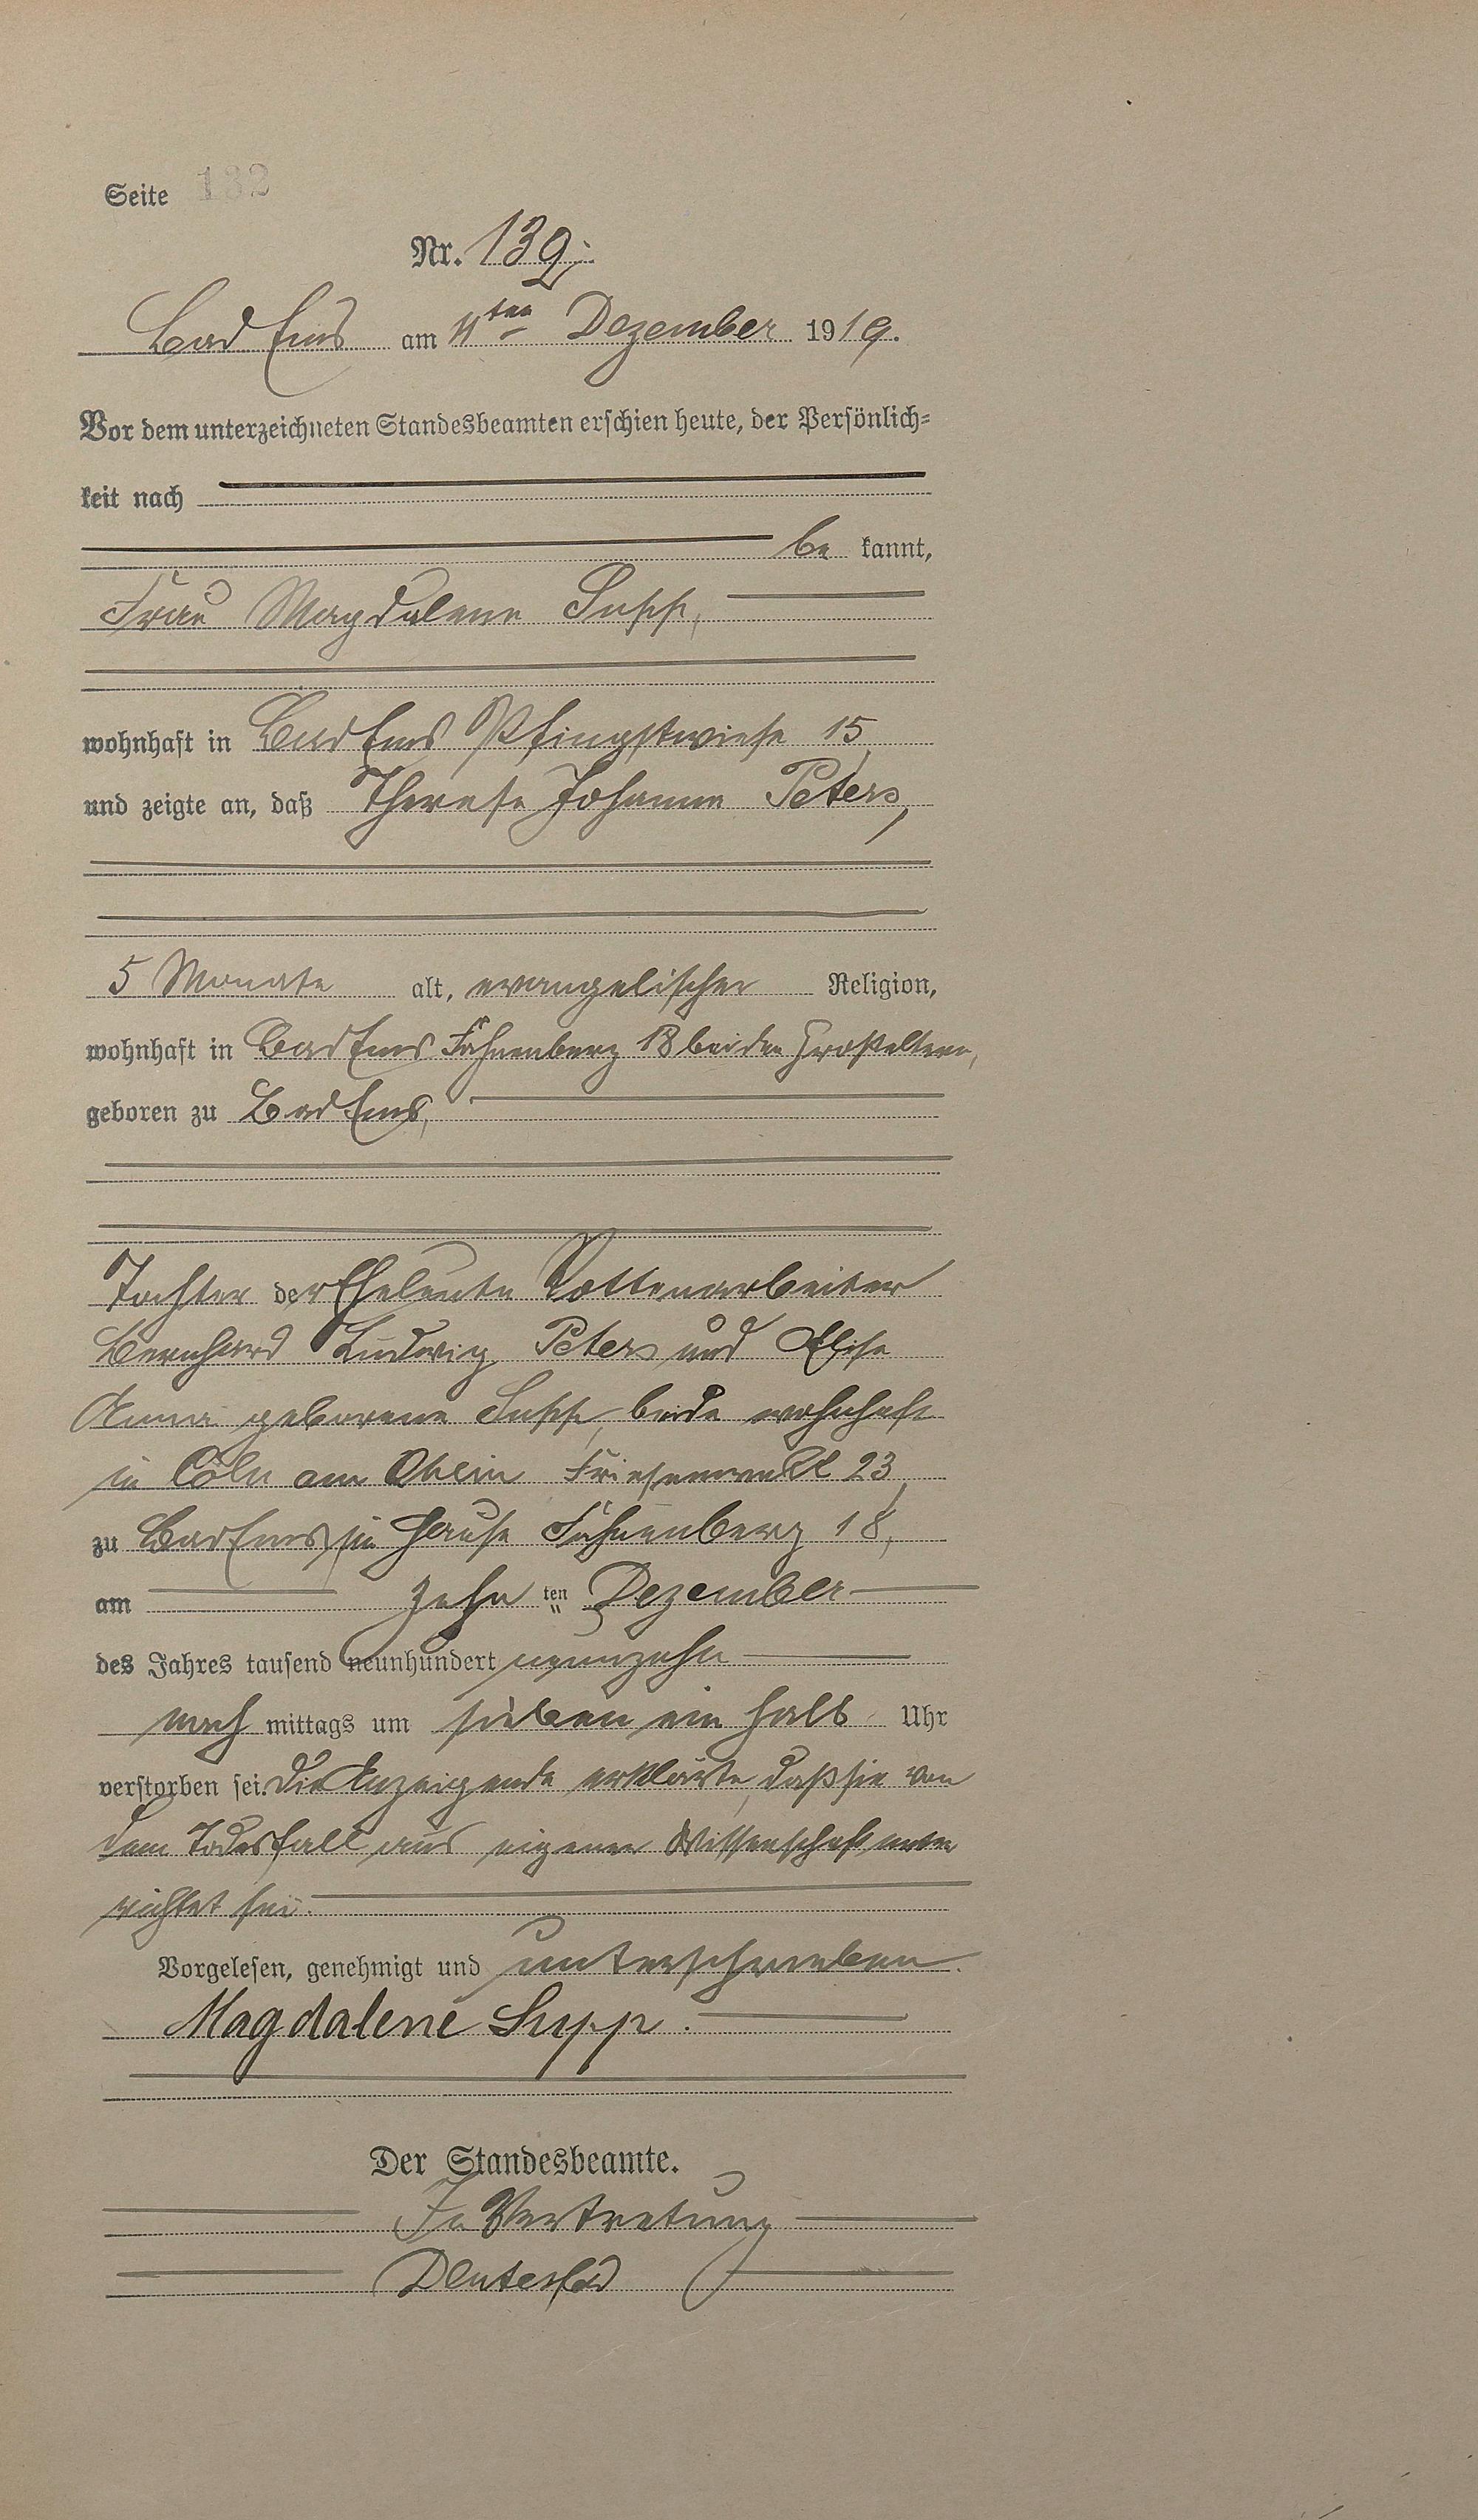 Seite 132
Nr. 139.
Bad Ems am 11ten Dezember 1919.
Vor dem unterzeichneten Standesbeamten erschien heute, der Persönlich=
keit nach
be kannt,
Frau Magdalene Supp,
wohnhaft in Bad Ems Pfingstwiese 15,
und zeigte an, daß Therese Johanna Peters,
5 Monate alt, evangelischer Religion,
wohnhaft in Bad Ems Fahnenberg 18 bei den Großeltern,
geboren zu Bad Ems,
Tochter der Eheleute Rottenarbeiter
Bernhard Ludwig Peters und Elise
Anna geborene Supp, beide wohnhaft
in Cöln am Rhein Friesenwall 23,
zu Bad Ems, im Hause Fahnenberg 18,
am zehn ten Dezember
des Jahres tausend neunhundert neunzehn
nach mittags um sieben ein halb Uhr
verstorben sei. Die Anzeigende erklärte, daß sie von
dem Todesfall aus eigener Wissenschaft unter
richtet sei.
Vorgelesen, genehmigt und unterschrieben.
Magdalene Supp.
Der Standesbeamte.
In Vertretung